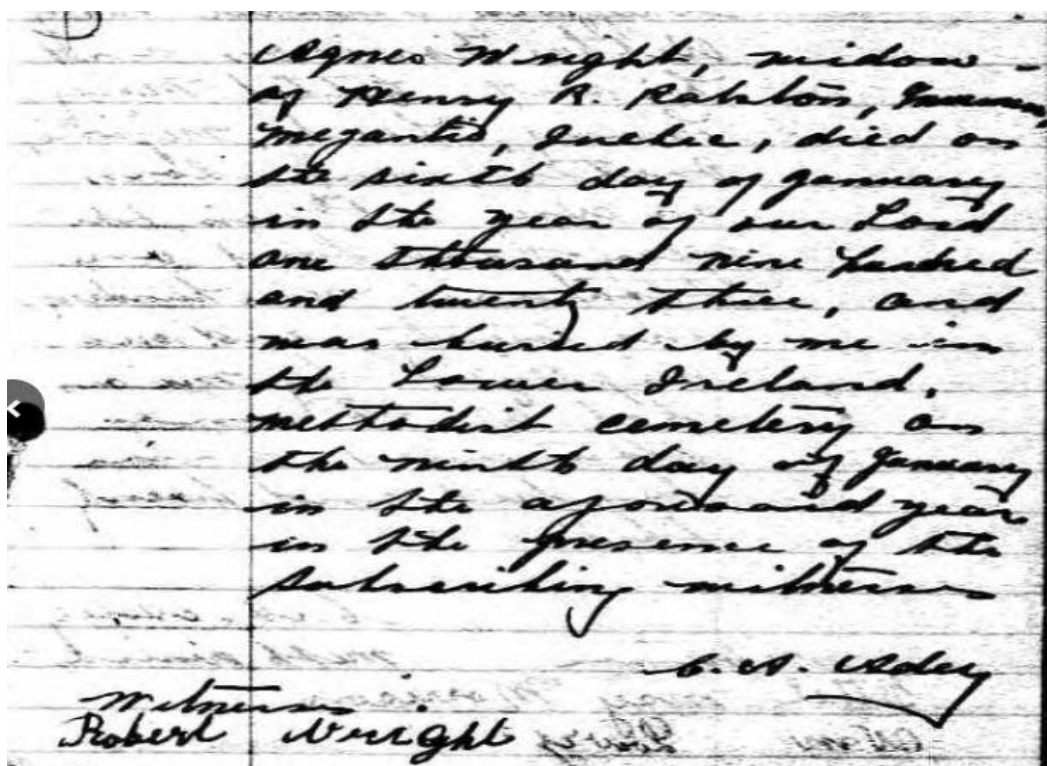 Agnes Wright, widow
of Henry R. Ralston,
Megantic, Quebec, died on
the sixth day of January
in the year of our Lord
one thousand nine hundred
and twenty three, and
was buried by me in
the Lower Ireland,
methodist cemetery on
the ninth day of January
in the aforesaid year
in the presence of the
subscribing witnesses
C. A. Adey
Witnesses
Robert Wright